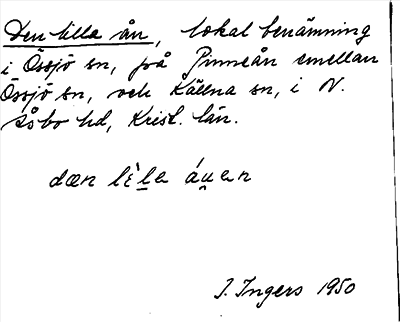 Den lilla ån, lokal benämning
i Össjö sn, på Pinneån emellan
Össjö sn, och Källna sn, i N.
Åsbo hd, Krist. län.
dæn lìle áu̯en
I. Ingers 1950